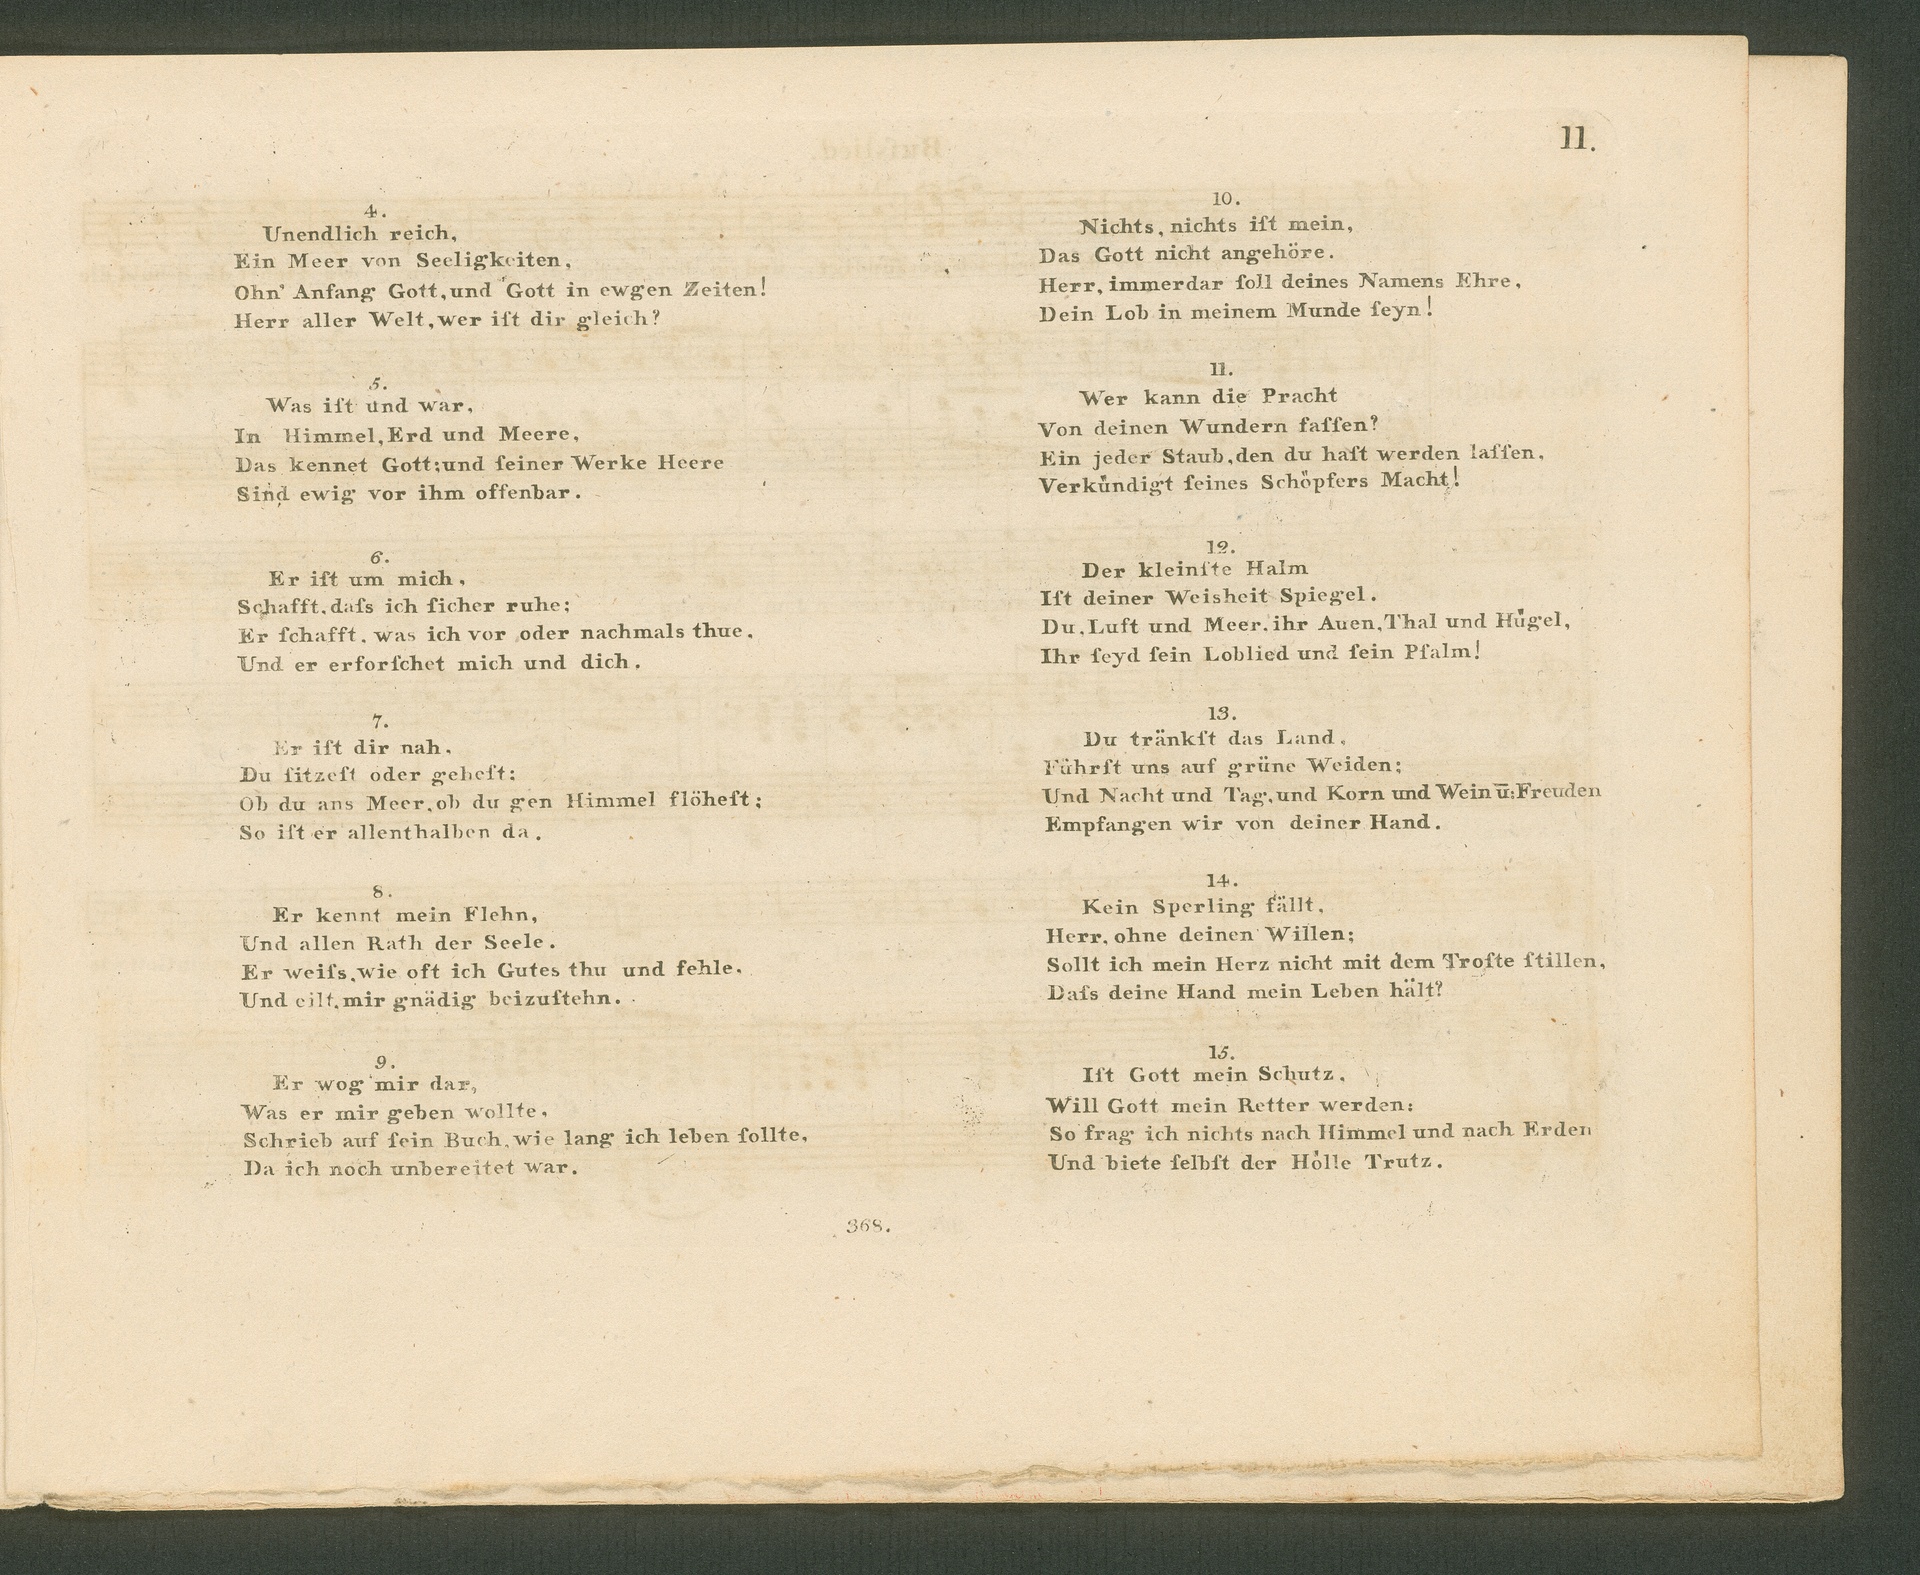 11.
4.
Unendlich reich,
Ein Meer von Seeligkeiten,
Ohn' Anfang Gott, und Gott in ewgen Zeiten!
Herr aller Welt, wer iſt dir gleich?
5.
Was iſt und war,
In Himmel, Erd und Meere,
Das kennet Gott; und ſeiner Werke Heere
Sind ewig vor ihm offenbar.
6.
Er iſt um mich,
Schafft, daſs ich ſicher ruhe;
Er ſchafft, was ich vor oder nachmals thue,
Und er erforſchet mich und dich.
7.
Er iſt dir nah,
Du ſitzeſt oder geheſt;
Ob du ans Meer, ob du gen Himmel flöheſt;
So iſt er allenthalben da.
8.
Er kennt mein Flehn,
Und allen Rath der Seele.
Er weiſs, wie oft ich Gutes thu und fehle,
Und eilt, mir gnädig beizuſtehn.
9.
Er wog mir dar,
Was er mir geben wollte,
Schrieb auf ſein Buch, wie lang ich leben ſollte,
Da ich noch unbereitet war.
10.
Nichts, nichts iſt mein,
Das Gott nicht angehöre.
Herr, immerdar ſoll deines Namens Ehre,
Dein Lob in meinem Munde ſeyn!
11.
Wer kann die Pracht
Von deinen Wundern faſſen?
Ein jeder Staub, den du haſt werden laſſen,
Verkündigt ſeines Schöpfers Macht!
12.
Der kleinſte Halm
Iſt deiner Weisheit Spiegel.
Du, Luft und Meer, ihr Auen, Thal und Hügel,
Ihr ſeyd ſein Loblied und ſein Pſalm!
13.
Du tränkſt das Land,
Führſt uns auf grüne Weiden;
Und Nacht und Tag, und Korn und Wein u: Freuden
Empfangen wir von deiner Hand.
14.
Kein Sperling fällt,
Herr, ohne deinen Willen;
Sollt ich mein Herz nicht mit dem Troſte ſtillen,
Daſs deine Hand mein Leben hält?
15.
Iſt Gott mein Schutz,
Will Gott mein Retter werden:
So frag ich nichts nach Himmel und nach Erden
Und biete ſelbſt der Hölle Trutz.
368.